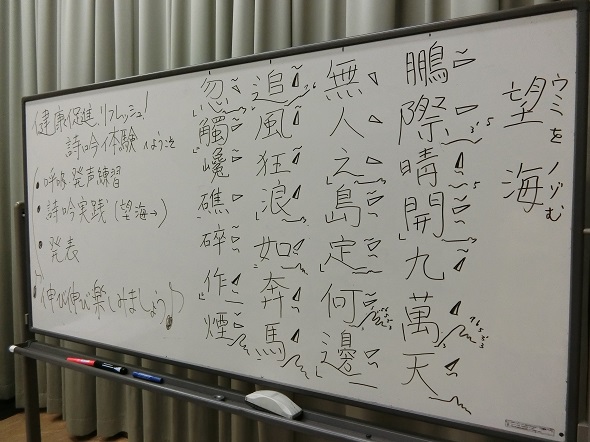 望海
ウミを ノゾむ
鵬際晴開九萬天
無人之島定何邊
追風狂浪如奔馬
忽觸巉礁碎作煙
健康促進、リフレッシュ!
詩吟体験 へようこそ
・呼吸・発声練習
・詩吟実践(望海→)
・発表
・伸び伸び楽しみましょう♪